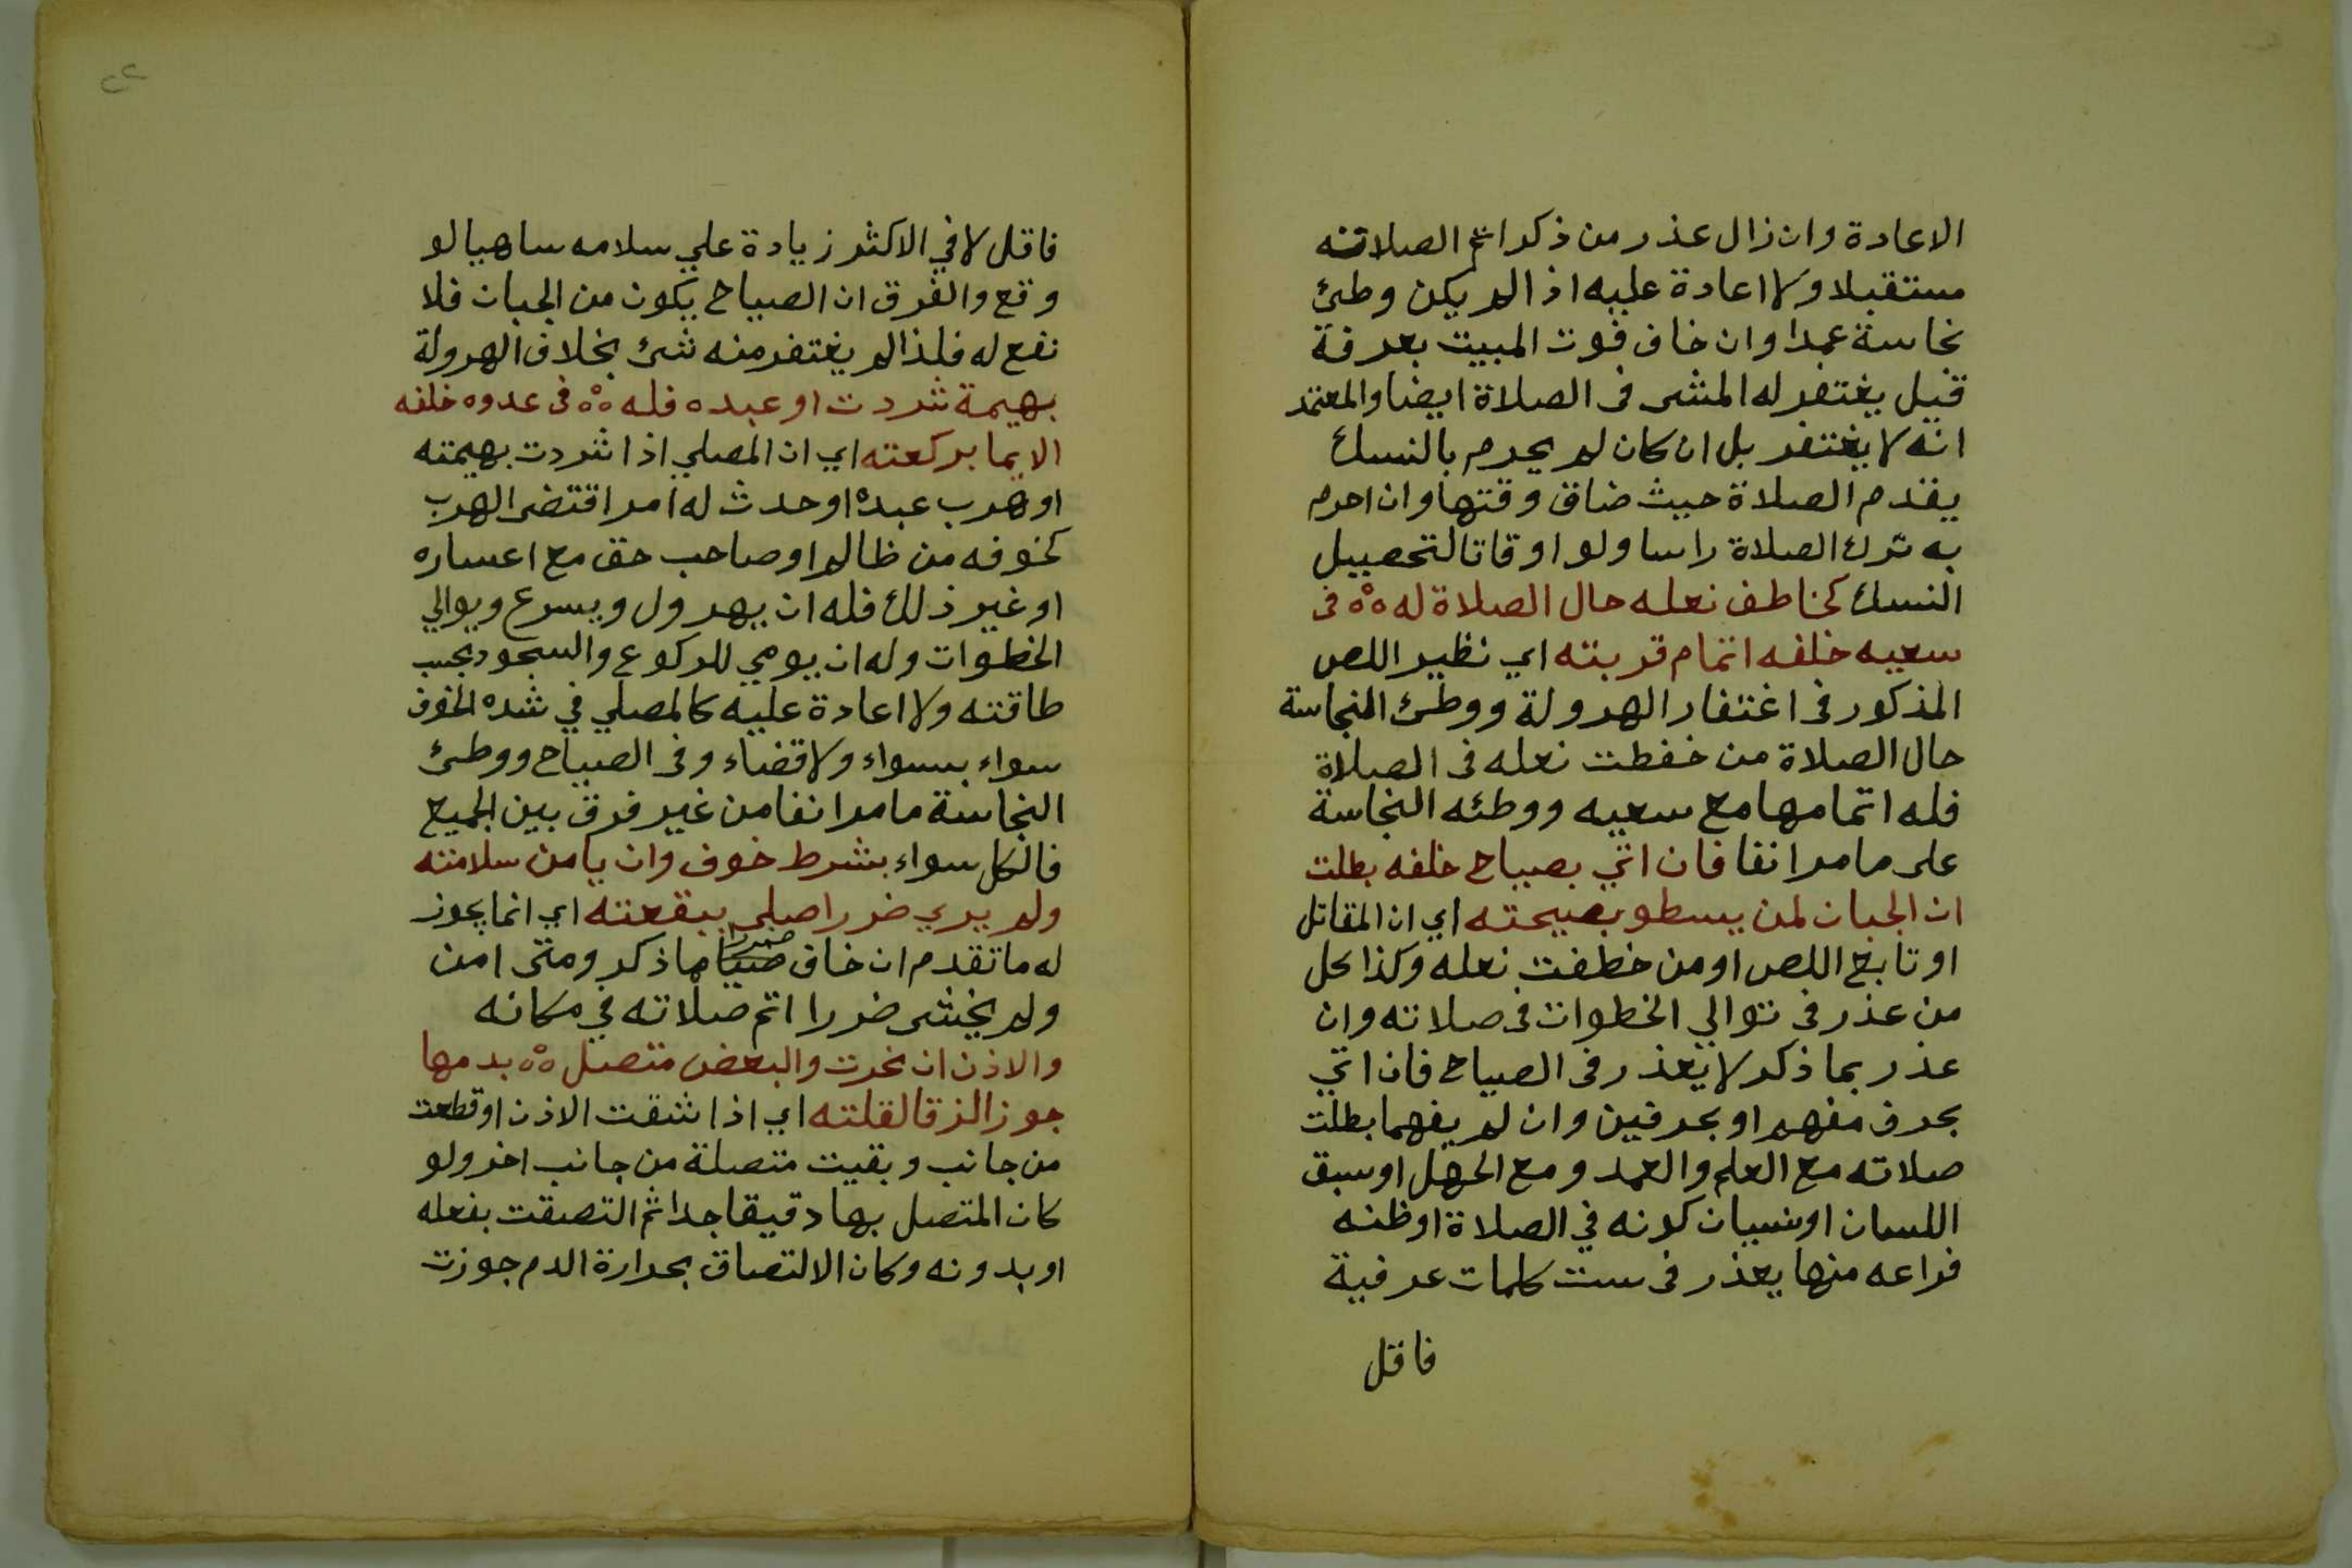 الاعادة وان زال عذر من ذكر اتم الصلاته
مستقبلا ولا اعادة عليه اذا لم يكن وطئ
نجاسة عمدا وان خاف فوت المبيت بعرفة
قيل يغتفر له المشى فى الصلاة ايضا والمعتمد
انه لا يغتفر بل ان كان لم يحرم بالنسك
يقدم الصلاة حيث ضاق وقتها وان احرم
به ترك الصلاة راسا ولو اوقاتا لتحصيل
النسك كخاطف نعله حال الصلاة له ٥٥ فى
سعيه خلفه اتمام قربته اي نظير اللص
المذكور فى اغتفار الهرولة ووطئ النجاسة
حال الصلاة من خفطت نعله فى الصلاة
فله اتمامها مع سعيه ووطئه النجاسة
على ما مر انفا فان اتي بصياح خلفه بطلت
ان الجبان لمن يسطو بصيحته اي ان المقاتل
او تابع اللص او من خطفت نعله وكذا كل
من عذر فى توالي الخطوات فى صلاته وان
عذر بما ذكر لا يعذر فى الصياح فان اتي
بحرف مفهم او بحرفين وان لم يفهما بطلت
صلاته مع العلم والعمد ومع الجهل او سبق
اللسان او نسيان كونه في الصلاة او ظنه
فراغه منها يعذر فى ست كلمات عرفية
فاقل
٢٢
فاقل لا في الاكثر زيادة علي سلامه ساهيا لو
وقع والفرق ان الصياح يكون من الجبان فلا
نفع له فلذا لم يغتفر منه شئ بخلاف الهرولة
بهيمة شردت او عبده فله ٥٥ فى عدوه خلفه
الايما بركعته اي ان المصلي اذا شردت بهيمته
او هرب عبده او حدث له امر اقتضى الهرب
كخوفه من ظالم او صاحب حق مع اعساره
او غير ذلك فله ان يهرول ويسرع ويوالي
الخطوات وله ان يومي للركوع والسجود بحسب
طاقته ولا اعادة عليه كالمصلي في شده الخوف
سواء بسواء ولا قضاء وفى الصياح ووطئ
النجاسة ما مر انفا من غير فرق بين الجميع
فالكل سواء بشرط خوف وان يامن سلامته
ولم يري ضررا صلي ببقعته اي انما يجوز
له ما تقدم ان خاف ضررا مما ذكر ومتى امن
ولم يخش ضررا اتم صلاته في مكانه
والاذن ان نحرت والبعض متصل ٥٥ بدمها
جوز الزقا لقلته اي اذا شقت الاذن او قطعت
من جانب وبقيت متصلة من جانب اخر ولو
كان المتصل بها دقيقا جدا ثم التصقت بفعله
او بدونه وكان الالتصاق بحرارة الدم جوزت